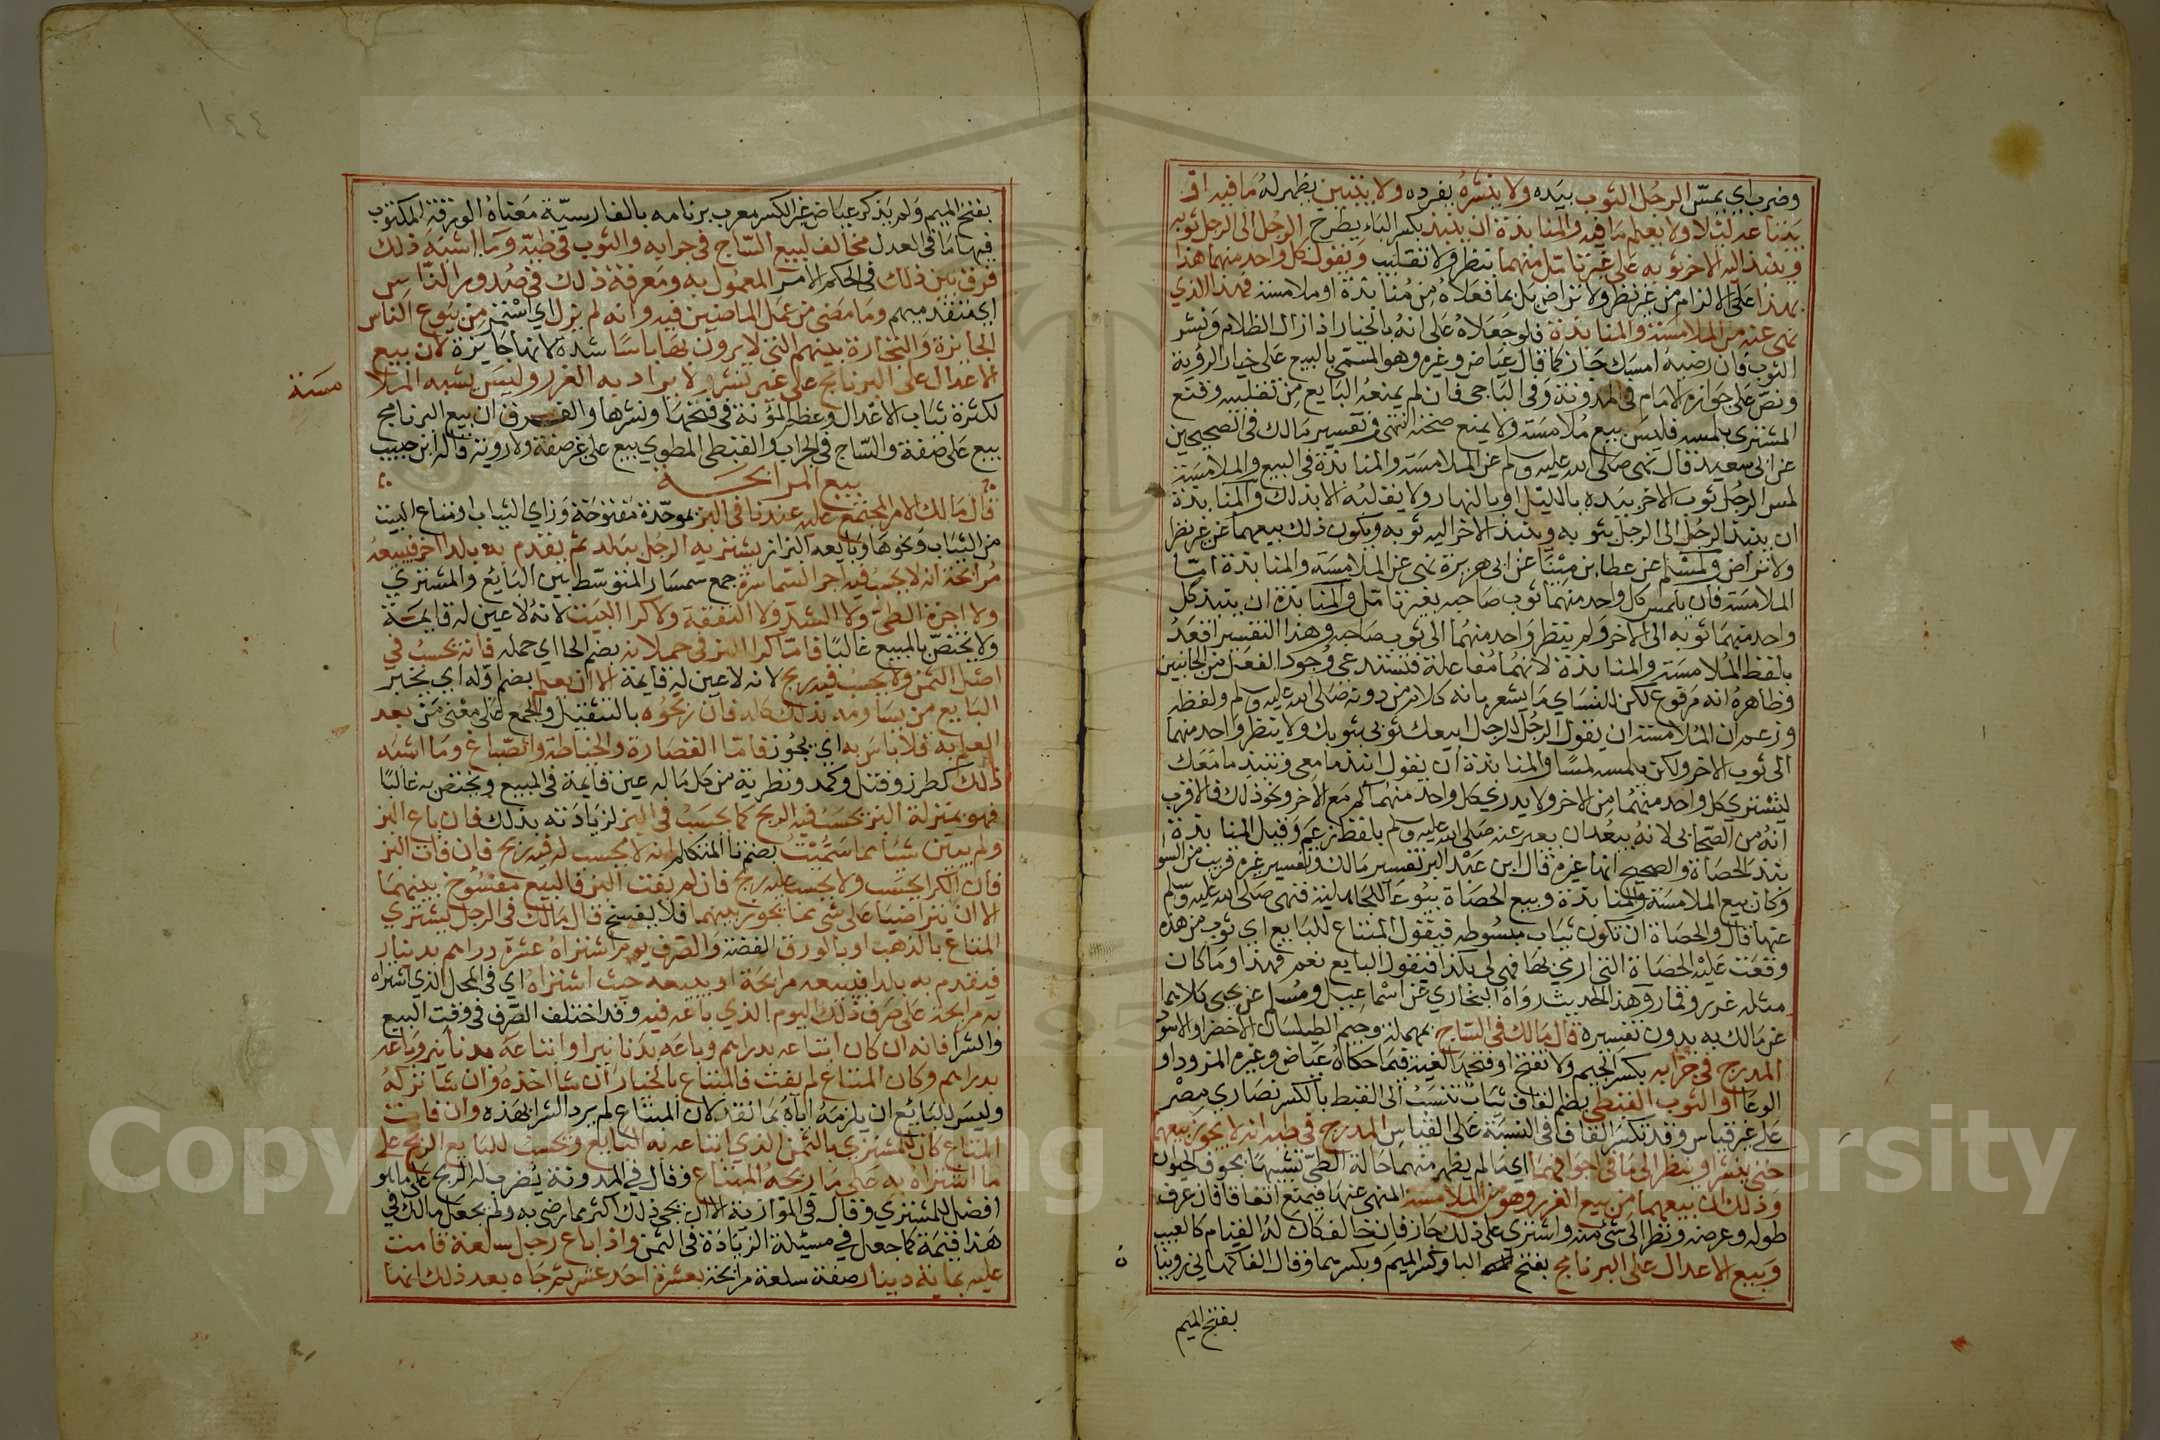 وضرب اي يمس الرجل الثوب بيده ولا ينشره يفرده ولا يتبين يظهر له ما فيه او
يبتاعه ليلا ولا يعلم ما فيه والمنابذة ان ينبذ بكسر الباء يطرح الرجل الى الرجل ثوبه
وينبذ اليه الاخر ثوبه على غير تامل منهما بنظر ولا تقليب ويقول كل واحد منهما هذا
بهذا على الالزام من غير نظر ولا تراض بل بما فعلاه من منابذة او ملامسة فهذا الذي
نهي عنه من الملامسة والمنابذة فلو جعلاه على انه بالخيار اذا زال الظلام ونشر
الثوب فان رضيه امسك جاز كما قال عياض وغيره وهو المسمى بالبيع على خيار الرؤية
ونص على جوازه الامام في المدونة وفي الباجي فان لم يمنعه البايع من تقليبه وقنع
المشتري بلمسه فليس بيع ملامسة ولا يمنع صحته انتهى وتفسير مالك في الصحيحين
عن ابي سعيد قال نهى صلى الله عليه وسلم عن الملامسة والمنابذة في البيع والملامسة
لمس الرجل ثوب الاخر بيده بالليل او بالنهار ولا يقلبه الا بذلك والمنابذة
ان ينبذ الرجل الى الرجل بثوبه وينبذ الاخر اليه ثوبه ويكون ذلك بيعهما عن غير نظر
ولا تراض ولمسلم عن عطاء بن مينا عن ابي هريرة نهى عن الملامسة والمنابذة اما
الملامسة فان يلمس كل واحد منهما ثوب صاحبه بغير تامل والمنابذة ان ينبذ كل
واحد منهما ثوبه الى الاخر ولم ينظر واحد منهما الى ثوب صاحبه وهذا التفسير اقعد
بلفظ الملامسة والمنابذة لانهما مفاعلة فتستدعي وجود الفعل من الجانبين
وظاهره انه مرفوع لكن للنساي ما يشعر بانه كلام من دونه صلى الله عليه وسلم ولفظه
وزعم ان الملامسة ان يقول الرجل للرجل ابيعك ثوبي بثوبك ولا ينظر واحد منهما
الى ثوب الاخر ولكن يلمسه لمسا والمنابذة ان يقول انبذ ما معي وتنبذ ما معك
ليشتري كل واحد منهما من الاخر ولا يدري كل واحد منهما كم مع الاخر ونحو ذلك فالاقرب
انه من الصحابي لانه يبعد ان يعبر عنه صلى الله عليه وسلم بلفظ زعم وقيل المنابذة
نبذ الحصاة والصحيح انها غيره قال ابن عبد البر تفسير مالك وتفسير غيره قريب من السوا
وكان بيع الملامسة والمنابذة وبيع الحصاة بيوعا للجاهلية فنهى صلى الله عليه وسلم
عنها قال والحصاة ان تكون ثياب مبسوطة فيقول المبتاع للبايع اي ثوب من هذه
وقعت عليه الحصاة التي ارمي بها فهي لي بكذا فيقول البايع نعم فهذا وما كان
مثله غرر وقمار وهذا الحديث رواه البخاري عن اسماعيل ومسلم عن يحيى كلاهما
عن مالك به بدون تفسيره قال مالك في الساج بمهملة وجيم الطيلسان الاخضر او الاسود
المدرج في جرابه بكسر الجيم ولا تفتح او فتحها لغية فيما حكاه عياض وغيره المزود او
الوعا او الثوب القبطي بضم القاف ثياب تنسب الى القبط بالكسر نصارى مصر
على غير قياس وقد تكسر القاف في النسبة على القياس المدرج في طيه انه لا يجوز بيعهما
حتى ينشر او ينظر الى ما في اجوافهما اي ما لم يظهر منهما حالة الطي تشبيها بجوف الحيوان
وذلك ان بيعهما من بيع الغرر وهو من الملامسة المنهي عنها فيمنع اتفاقا فان عرف
طوله وعرضه ونظر الى شي منه واشترى على ذلك جاز فان خالف كان له القيام كالعيب
وبيع الاعدال على البرنامج بفتح البا وكسر الميم وبكسرهما وقال الفاكهاني رويناه
بفتح الميم
١٤٤
بفتح الميم ولم يذكر عياض غير الكسر معرب برنامه بالفارسية معناه الورقة المكتوب
فيها ما في العدل مخالف لبيع الساج في جرابه والثوب في طيه وما اشبه ذلك
فرق بين ذلك في الحكم الامر المعمول به ومعرفة ذلك في صدور الناس
اي متقدميهم وما مضى من عمل الماضين فيه وانه لم يزل اي استمر من بيوع الناس
الجايزة والتجارة بينهم التي لا يرون بها باسا شدة لانها جايزة لان بيع
الاعدال على البرنامج على غير نشر ولا يراد به الغرر وليس يشبه الملا
مسة
لكثرة ثياب الاعدال وعظم المؤنة في فتحها ونشرها والفرق ان بيع البرنامج
بيع على صفة والساج في الجراب والقبطي المطوي بيع على غير صفة ولا روية قاله ابن حبيب
بيع المرابحة
قال مالك الامر المجتمع عليه عندنا في البز بموحدة مفتوحة وزاي الثياب او متاع البيت
من الثياب ونحوها وبايعه البزاز يشتريه الرجل ببلد ثم يقدم به بلدا اخر فيبيعه
مرابحة انه لا يحسب فيه اجر السماسرة جمع سمسار المتوسط بين البايع والمشتري
ولا اجرة الطي ولا الشد ولا النفقة ولا كرا البيت لانه لا عين له قايمة
ولا يختص بالمبيع غالبا فاما كرا البز في حملانه بضم الحا اي حمله فانه يحسب في
اصل الثمن ولا يحسب فيه ربح لانه لا عين له قايمة الا ان يعلم بضم اوله اي يخبر
البايع من يساومه بذلك كله فان ربحوه بالتثقيل والجمع على معنى من بعد
العلم به فلا باس به اي يجوز فاما القصارة والخياطة والصباغ وما اشبه
ذلك كطرز وفتل وكمد وتطرية من كل ما له عين قايمة في المبيع ويختص به غالبا
فهو بمنزلة البز يحسب فيه الربح كما يحسب في البز لزيادته بذلك فان باع البز
ولم يبين شيا مما سميت بضم تا المتكلم انه لا يحسب له فيه ربح فان فات البز
فان الكرا يحسب ولا يحسب عليه ربح فان لم يفت البز فالبيع مفسوخ بينهما
الا ان يتراضيا على شي مما يجوز بينهما فلا يفسخ قال مالك في الرجل يشتري
المتاع بالذهب او بالورق الفضة والصرف يوم اشتراه عشرة دراهم بدينار
فيقدم به بلدا فيبيعه مرابحة او يبيعه حيث اشتراه اي في المحل الذي اشتراه
به مرابحة على صرف ذلك اليوم الذي باعه فيه وقد اختلف الصرف في وقت البيع
والشرا فانه ان كان ابتاعه بدراهم وباعه بدنانير او ابتاعه بدنانير وباعه
بدراهم وكان المتاع لم يفت فالمبتاع بالخيار ان شا اخذه وان شا تركه
وليس للبايع ان يلزمه اياه بما نقد لان المبتاع لم يرد الشرا بهذه وان فات
المتاع كان للمشتري بالثمن الذي ابتاعه به البايع ويحسب للبايع الربح على
ما اشتراه به على ما ربحه المبتاع وقال في المدونة يضرب له الربح على ما هو
افضل للمشتري وقال في الموازية الا ان يجي ذلك اكثر مما رضي به ولم يجعل مالك في
هذا قيمة كما جعل في مسئلة الزيادة في الثمن واذا باع رجل سلعة قامت
عليه بماية دينار صفة سلعة مرابحة بعشرة احد عشر ثم جاه بعد ذلك انها